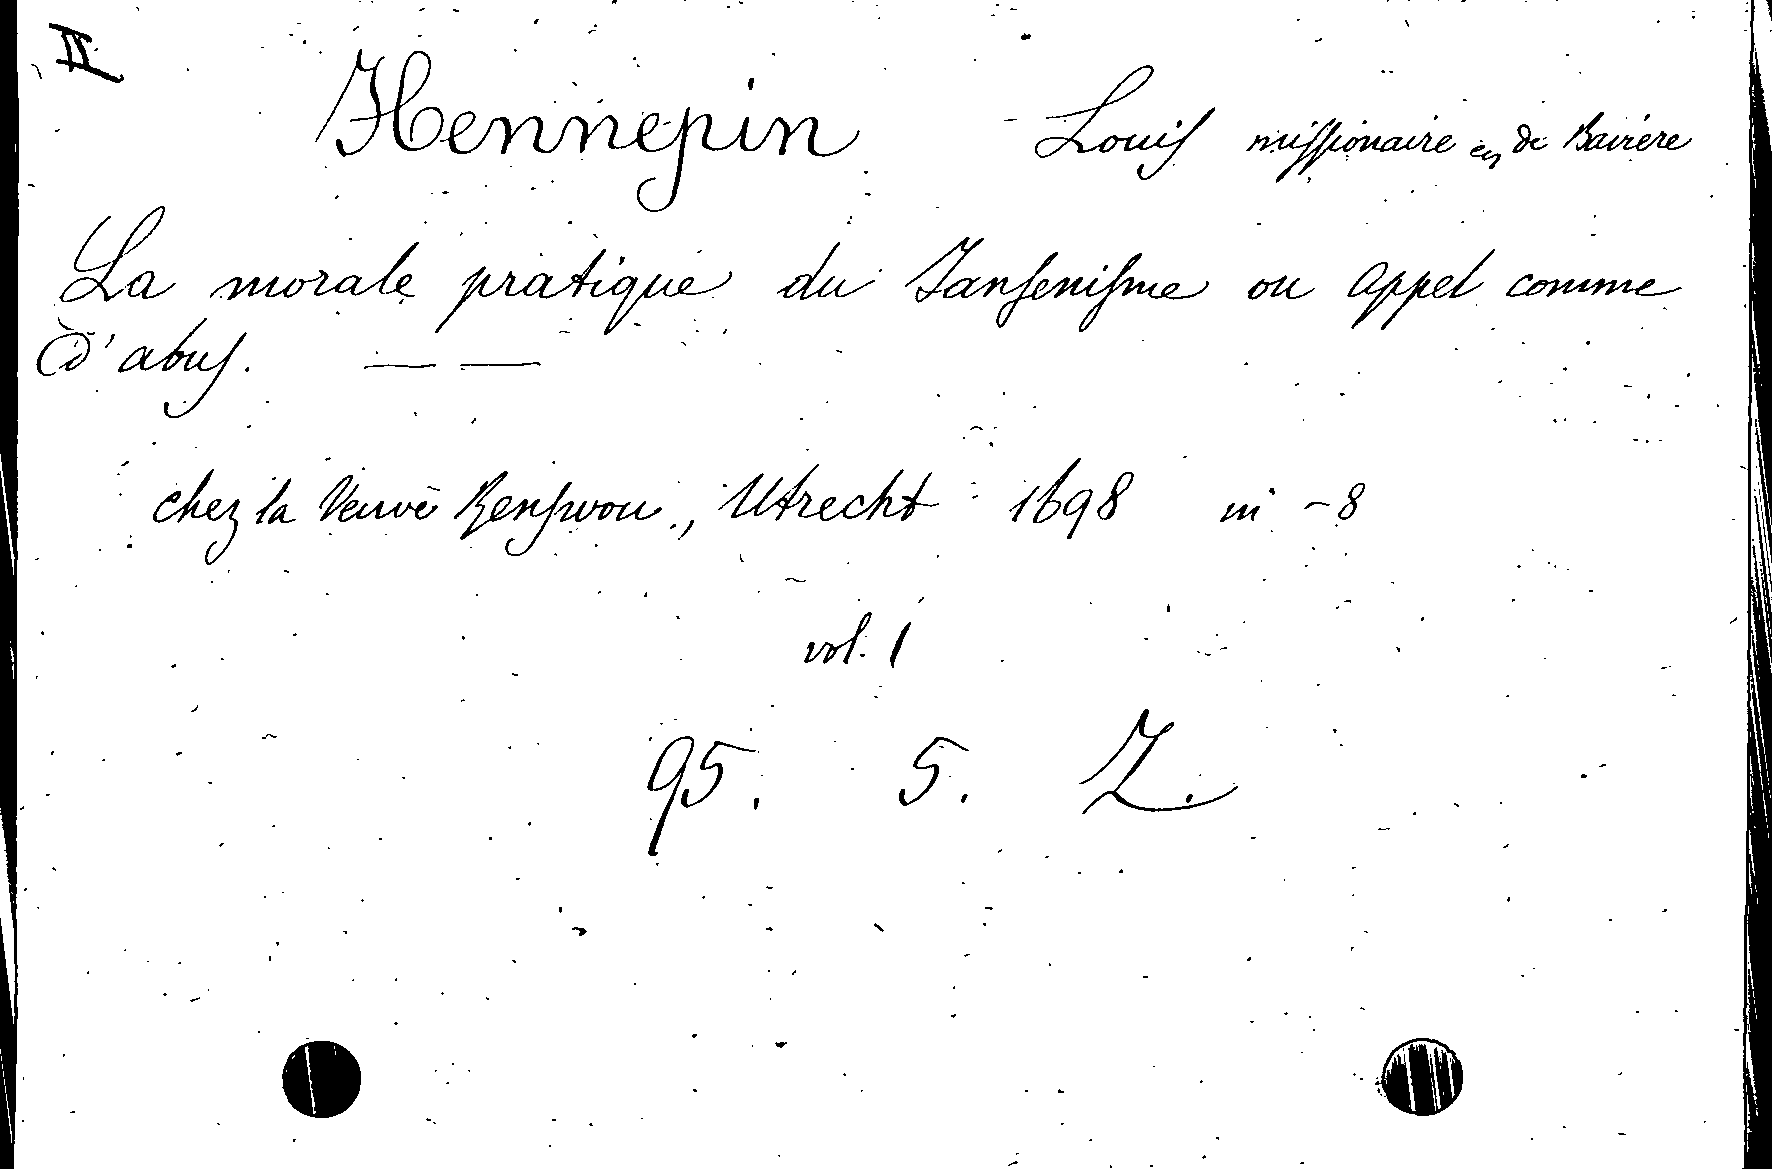 II
Hennepin Louis missionaire en de Baviere
La morale pratique du Jansenisme ou Appel comme
d'abus. — —
chez la Veuve Renswou, Utrecht 1698 in -8
vol. 1
95. 5. Z.